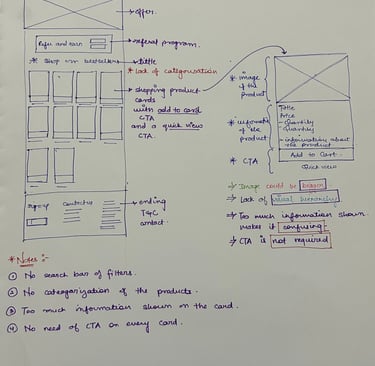 offer.
Refer and earn
referal program.
* Shop our bestsellers
title
* Lack of categorisation
shopping product
cards
with add to card
CTA
and a quick view
CTA.
* image
of the
product
Title
Price
- Quantity
- Quantity
- information about
the product
* information
of the
product
* CTA
Add to Cart
Quick view
→ Image could be bigger
→ Lack of visual hierarchy
→ Too much information shown
makes it confusing
→ CTA is not required
Sign up
Contact us
ending
T&C
contact
* Notes :-
① No search bar of filters.
② No categorization of the products.
③ Too much information shown on the card.
④ No need of CTA on every card.